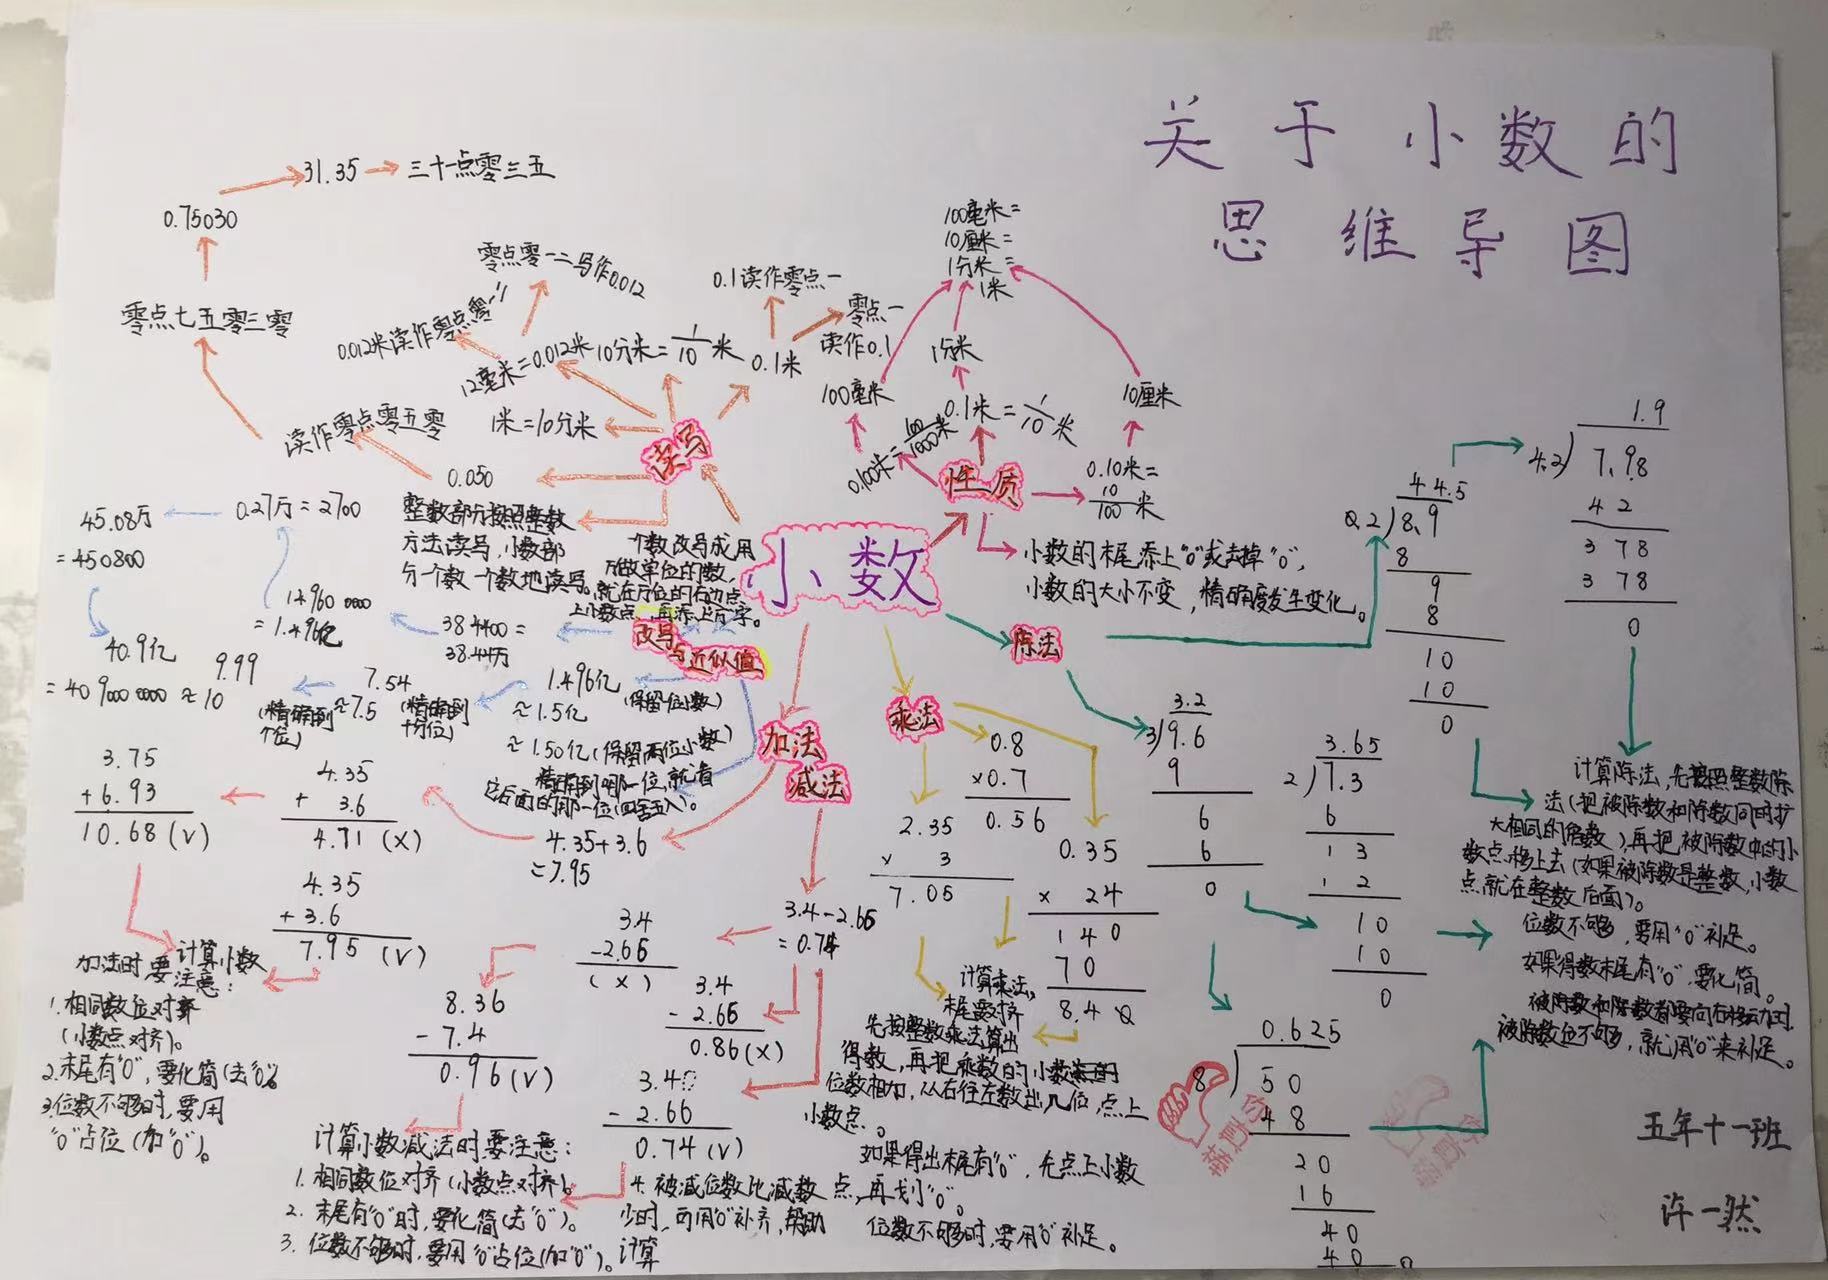 关于小数的
思维导图
小数
读写
31.35
三十一点零三五
0.75030
零点七五零三零
读作零点零五零
0.050
零点零一二写作0.012
0.012米读作零点零一二
12毫米=0.012米
10分米=1/10米
1米=10分米
0.1读作零点一
零点一
读作0.1
0.1米
整数部分按照整数
方法读写,小数部
分一个数一个数地读写。
性质
100毫米=
10厘米=
1分米=
1米
100毫米
1分米
10厘米
0.100米=100/1000米
0.1米=1/10米
0.10米=
10/100米
小数的末尾添上“0”或去掉“0”,
小数的大小不变,精确度发生变化。
改写与近似值
个数改写成用
万做单位的数,
就在万位的右边点
上小数点,再添上万字。
384400=
38.44万
149600000
=1.496亿
0.27万=2700
45.08万
=450800
40.9亿
=4090000000
1.496亿
≈1.5亿
(保留一位小数)
≈1.50亿(保留两位小数)
7.54
≈7.5
(精确到
十分位)
9.99
≈10
(精确到
个位)
精确到哪一位,就看
它后面的那一位(四舍五入)。
加法
减法
4.35+3.6
=7.95
4.35
+3.6
4.71(×)
3.75
+6.93
10.68(√)
4.35
+3.6
7.95(√)
计算小数
加法时要注意:
1.相同数位对齐
(小数点对齐)。
2.末尾有“0”,要化简(去“0”)。
3.位数不够时,要用
“0”占位(加“0”)。
3.4-2.66
=0.74
3.4
-2.66
(×)
3.4
-2.66
0.86(×)
3.40
-2.66
0.74(√)
8.36
-7.4
0.96(√)
计算小数减法时要注意:
1.相同数位对齐(小数点对齐)。
2.末尾有“0”时,要化简(去“0”)。
3.位数不够时,要用“0”占位(加“0”)。
4.被减位数比减数
少时,可用“0”补齐,帮助
计算
乘法
0.8
×0.7
0.56
2.35
×3
7.05
0.35
×24
140
70
8.40
计算乘法,
末尾要对齐
先按整数乘法算出
得数,再把乘数的小数
位数相加,从右往左数出几位,点上
小数点。
如果得出末尾有“0”,先点上小数
点,再划“0”。
位数不够时,要用“0”补足。
除法
1.9
4.2)7.98
42
378
378
0
44.5
0.2)8.9
8
9
8
10
10
0
3.2
3)9.6
9
6
6
0
3.65
2)7.3
6
13
12
10
10
0
0.625
8)50
48
20
16
40
40
0
计算除法,先按照整数除
法(把被除数和除数同时扩
大相同的倍数),再把被除数中的小
数点移上去(如果被除数是整数,小数
点就在整数后面)。
位数不够,要用“0”补足。
如果得数末尾有“0”,要化简。
被除数和除数都要向右移动时,
被除数位不够,就用“0”来补足。
你真棒
你真棒
五年十一班
许一然